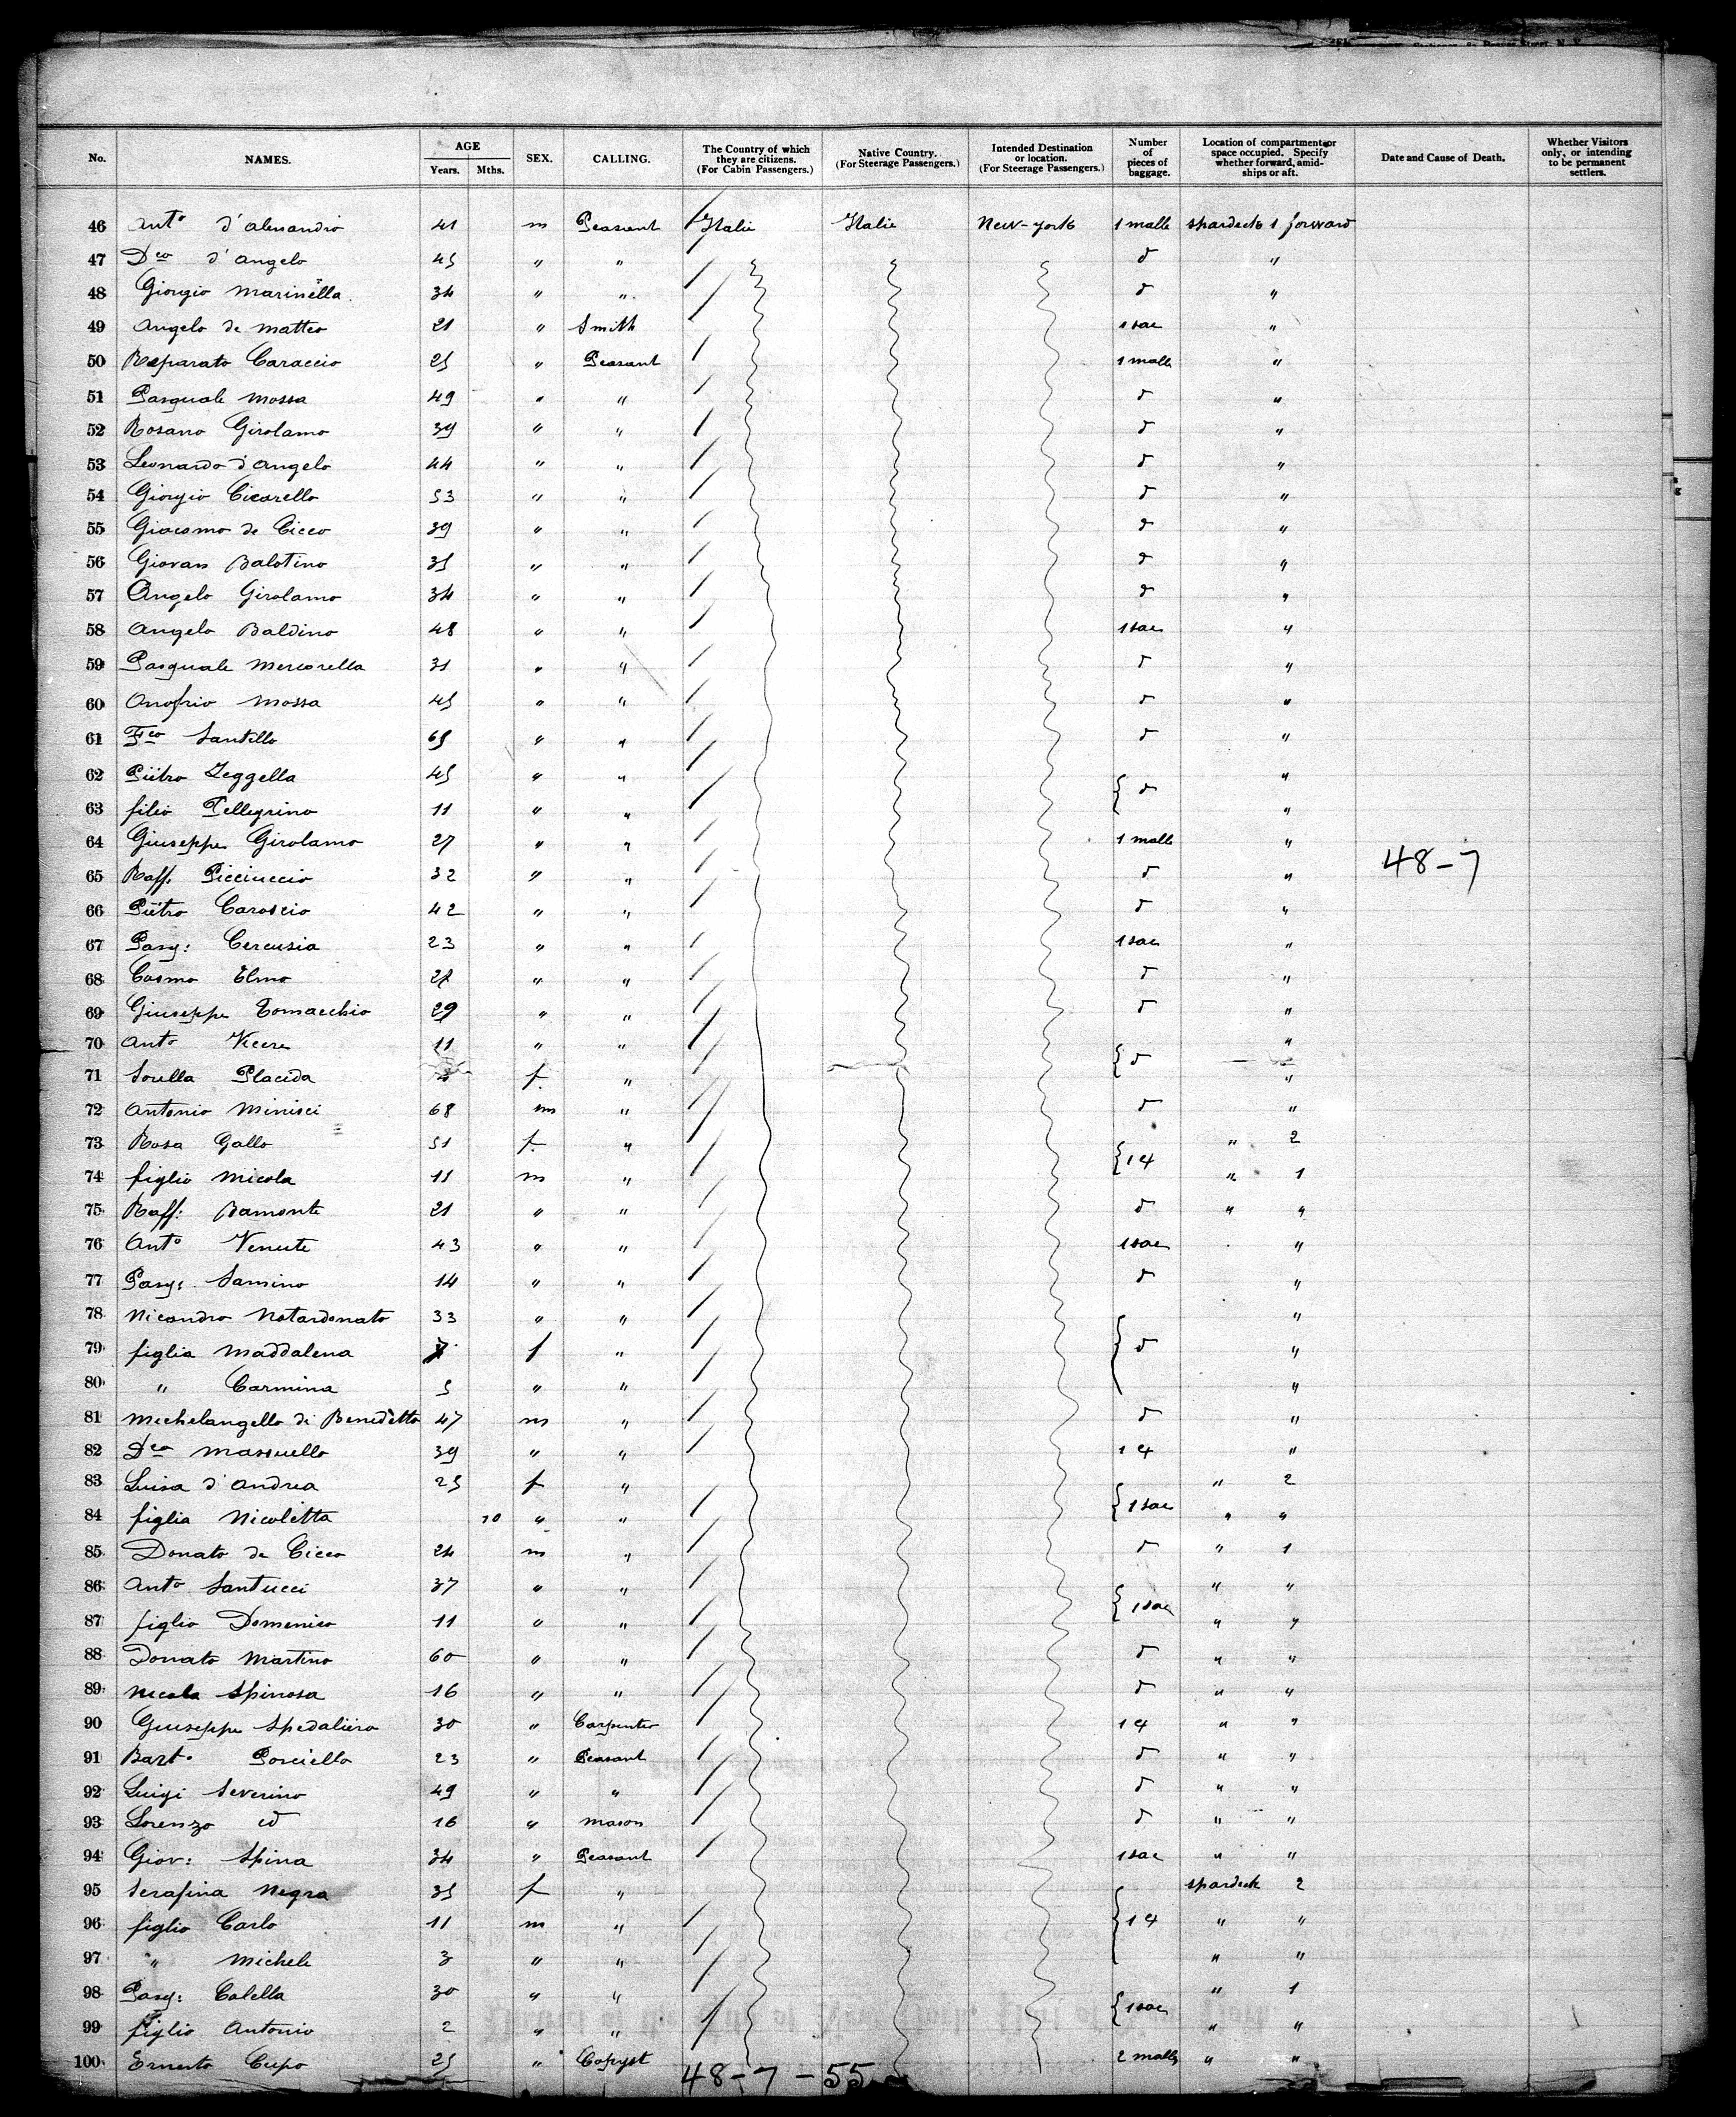 No. NAMES. AGE Years. Mths. SEX. CALLING. The Country of which they are citizens. (For Cabin Passengers.) Native Country. (For Steerage Passengers.) Intended Destination or location. (For Steerage Passengers.) Number of pieces of baggage. Location of compartment or space occupied. Specify whether forward, amidships or aft. Date and Cause of Death. Whether Visitors only, or intending to be permanent settlers.
46 Anto d'Alessandro 41 m Peasant Italie Italie New-York 1 malle spardeck 1 forward
47 Dco d'Angelo 45 " " d "
48 Giorgio Marinella 34 " " d "
49 Angelo de Matteo 21 " Smith 1 sac "
50 Reparato Caraccio 25 " Peasant 1 malle "
51 Pasquale Mossa 49 " " d "
52 Rosano Girolamo 39 " " d "
53 Leonardo d'Angelo 44 " " d "
54 Giorgio Cicarello 53 " " d "
55 Giacomo de Cicco 39 " " d "
56 Giovan Balotino 35 " " d "
57 Angelo Girolamo 34 " " d "
58 Angelo Baldino 48 " " 1 sac "
59 Pasquale Mercorella 31 " " d "
60 Onofrio Mossa 45 " " d "
61 Fco Santillo 65 " " d "
62 Pietro Zeggella 45 " " d "
63 filio Pellegrino 11 " " "
64 Giuseppe Girolamo 27 " " 1 malle "
65 Raff. Picciuccio 32 " " d " 48-7
66 Pietro Caroscio 42 " " d "
67 Pasq: Cercusia 23 " " 1 sac "
68 Cosmo Elmo 27 " " d "
69 Giuseppe Tomacchio 29 " " d "
70 Anto Vicere 11 " " d "
71 Sorella Placida f. " "
72 Antonio Minisci 68 m " d "
73 Rosa Gallo 51 f. " 1 d " 2
74 figlio Nicola 11 m " " 1
75 Raff: Bamonte 21 " " d " "
76 Anto Venute 43 " " 1 sac "
77 Pasq: Samino 14 " " d "
78 Nicandro Notardonato 33 " " d "
79 figlia Maddalena 7 f " "
80 " Carmina 5 " " "
81 Michelangello di Benedetto 47 m " d "
82 Dco Massuello 39 " " 1 d "
83 Luisa d'Andrea 25 f " 1 sac " 2
84 figlia Nicoletta 10 " " " "
85 Donato de Cicco 24 m " d " 1
86 Anto Santucci 37 " " 1 sac " "
87 figlio Domenico 11 " " " "
88 Donato Martino 60 " " d " "
89 Nicola Spinosa 16 " " d " "
90 Giuseppe Spedaliero 30 " Carpenter 1 d " "
91 Barto Porciello 23 " Peasant d " "
92 Luigi Severino 49 " " d " "
93 Lorenzo id 16 " mason d " "
94 Giov: Spina 34 " Peasant 1 sac " "
95 Serafina Negra 35 f " 1 d spardeck 2
96 figlio Carlo 11 m " " "
97 " Michele 3 " " " "
98 Pasq: Colella 30 " " 1 sac " 1
99 figlio Antonio 2 " " " "
100 Ernesto Cupo 25 " Copyst 2 malles " "
48-7-55